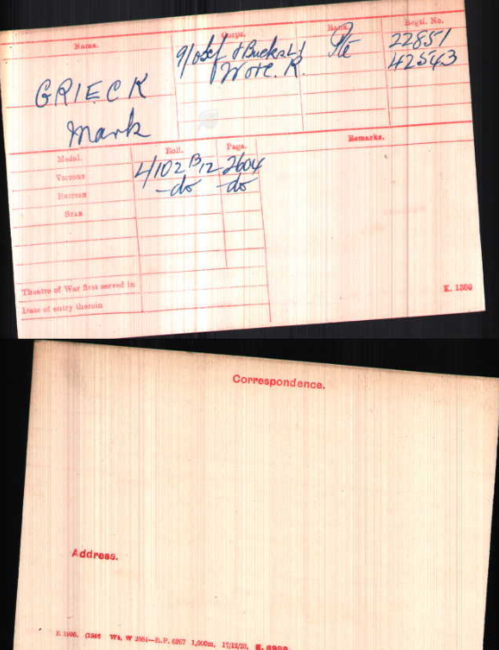 Name. Corps. Rank. Regtl. No.
GRIECK 9/Oxf & Bucks L I Pte 22851
Mark Worc. R. 42543
Medal. Roll. Page. Remarks.
Victory 4/102 B12 2604
British -do- -do-
Star
Theatre of War first served in
Date of entry therein K. 1380
Correspondence.
Address.
1,500m,